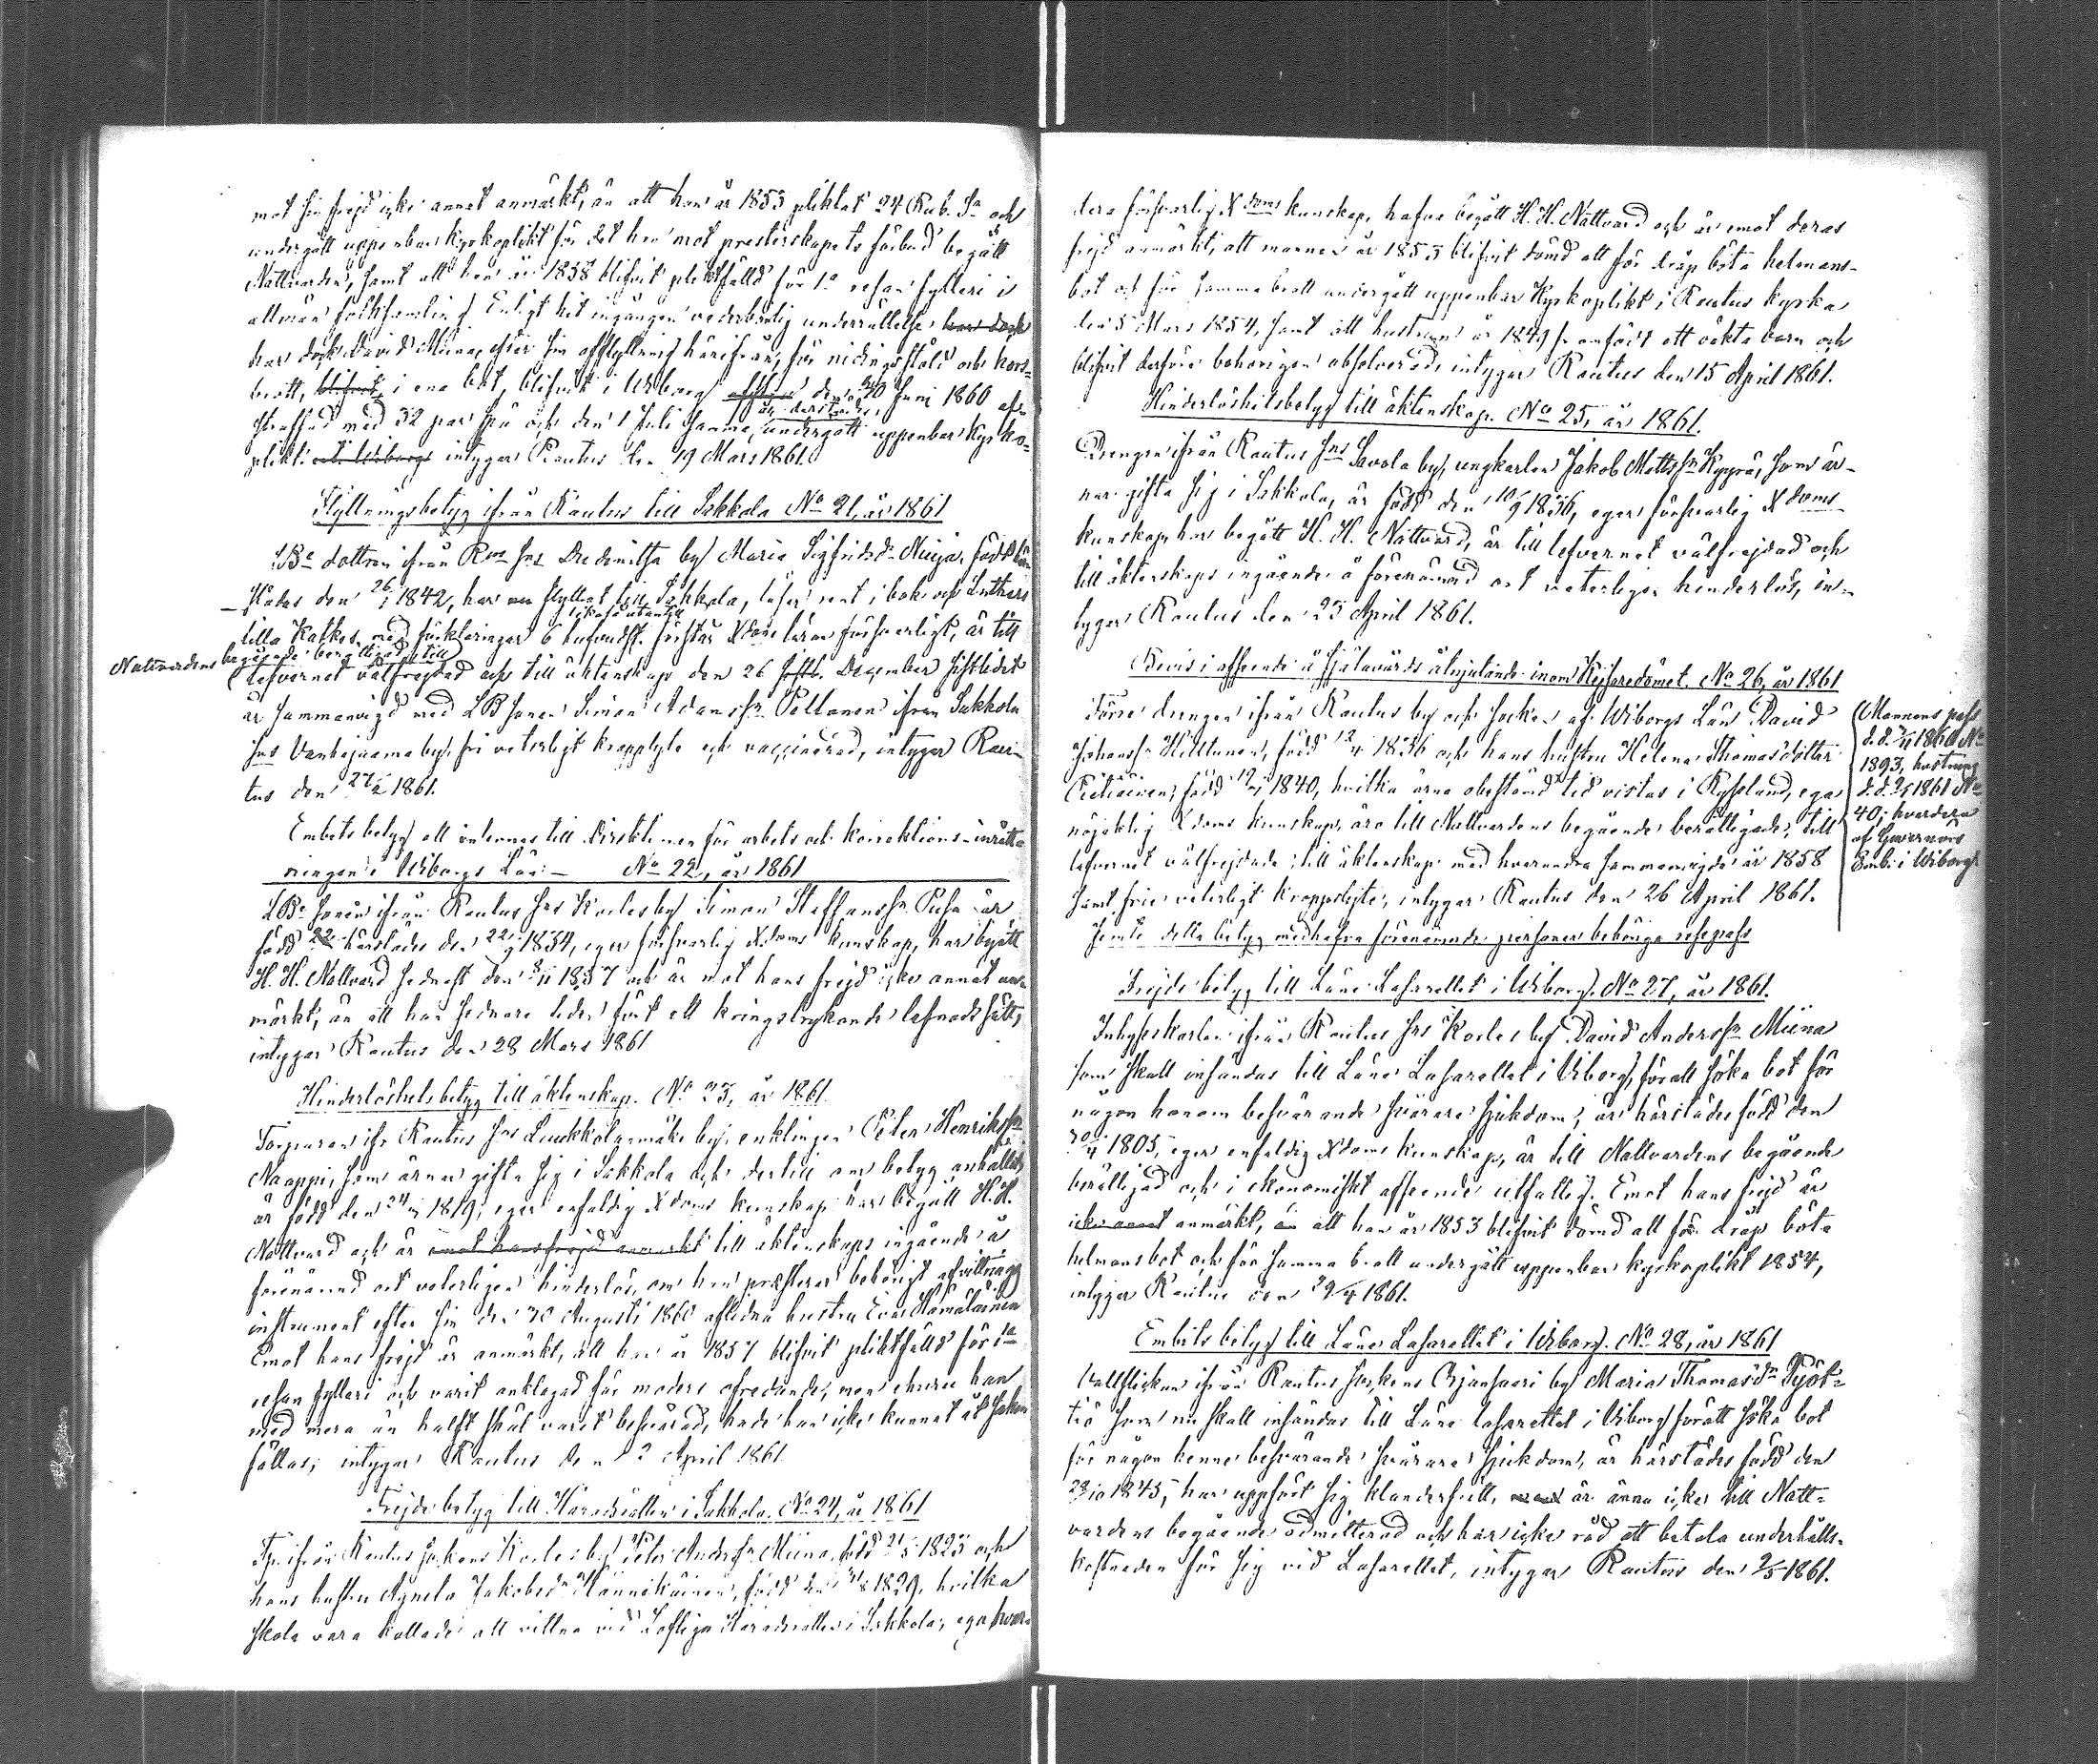 mot hans frejd icke annat anmärkt, än att han år 1853 pliktat 24 Rub. Sr och
undergått uppenbar Kyrkoplikt för det han mot presterskapets förbud begått
Nattvarden, samt att han år 1858 blifvit pliktfälld för 1a resan fylleri i
allmän folksamling. Enligt hit ingången vederbörlig underrättelse har dock
har dock David Miina, efter sin afflyttning härifrån, för nidingsstöld och kors-
brott, blifvit, i ena bot, blifvit i Wiborg den 30 Juni 1860 af-
straffad med 32 par spö och den 1 Juli samma år derstädes undergått uppenbar Kyrko-
plikt. i Wiborg intygar Rautus den 19 Mars 1861.
Flyttningsbetyg ifrån Rautus till Sakkola No 21, år 1861
LBe dottren ifrån Rus Sns by Maria Sigfridsdr Ninja, född här-
städes den 26/ 1842, har flyttat till Sakkola, läser rent i bok och Luthers
lilla Katkes med förklaringar likaså utantill 6 hufvudst. förstår Xdoms läran försvarligt, är till
Nattvardens begående berättigad till
lefvernet välfrejdad och till äktenskap den 26 December sistlidet
år sammanvigd med LB sonen Simon Adamssn Pellonen ifrån Sakkola
Sns Vanhajaama by, fri veterligt kroppslyte och vaccinerad, intygar Rau-
tus den 27/2 1861.
Embets betyg att inlemnas till Direktionen för arbets och korrektions-inrätt-
ningen i Wiborgs Län — No 22, år 1861
LBe sonen ifrån Rautus Sns Korles by Simon Staffanssn Puha är
född 22 härstädes den 22/9 1834, eger försvarlig Xdoms kunskap, har begått
H. H. Nattvard sednast den 8/11 1857 och är mot hans frejd icke annat an-
märkt, än att han sednare tider fört ett kringstrykande lefnadssätt,
intygar Rautus den 28 Mars 1861
Hinderlöshets betyg till äktenskap. No 23, år 1861.
Torparen ifr Rautus Sns Luukkolanmäki by, enklingen Peter Henrikssn
Naappi, som ärnar gifta sig i Sakkola och dertill om betyg anhållit,
är född den 24/ 1819, eger enfaldig Xdoms kunskap har begått H. H.
Nattvard och är emot hans frejd anmärkt till äktenskaps ingående å
förenämnd ort veterligen hinderlös, om han presterar behörigt afvittrings
instrument efter sin den 30 Augusti 1860 aflidna hustru Eva Hämäläinen
Emot hans frejd är anmärkt, att han år 1857 blifvit pliktfälld för 1a
resan fylleri och varit anklagad för moders ofredande, men ehuru han
med mera än halft skäl varit besvärad, hade han icke kunnat åt saken
fällas; intygar Rautus den 2 April 1861
Frejdebetyg till Häradsrätten i Sakkola. No 24, år 1861
Tp. ifrån Rautus sockens Korles by Peter Anderssn Miina, född 21/5 1825 och
hans hustru Agneta Jakobsdr Hännikäinen, född den 1829, hvilka
skola vara kallade att vittna vid Lofliga Häradsrätten i Sakkola, ega hvar-
dera försvarlig Xdoms kunskap, hafva begått H. H. Nattvard och är emot deras
frejd anmärkt, att mannen år 1853 blifvit dömd att för dråp böta helmans-
bot och för samma brott undergått uppenbar Kyrkoplikt i Rautus kyrka
den 5 Mars 1854, samt att hustrun år 1849 framfödt ett oäkta barn och
blifvit derföre behörigen absolverad, intygar Rautus den 15 April 1861.
Hinderlöshetsbetyg till äktenskap. No 25, år 1861.
Drengen ifrån Rautus Sns Savola by, ungkarlen Jakob Mattssn Kyyrö, som är-
nar gifta sig i Sakkola, är född den 10/9 1836, eger försvarlig Xdoms
kunskap, har begått H. H. Nattvard, är till lefvernet välfrejdad och
till äktenskaps ingående å förenämnd ort veterligen hinderlös, in-
tygar Rautus den 25 April 1861.
Bevis i afseende å själavårds åtnjutande inom Kejsaredömet. No 26, år 1861
Förre drengen ifrån Rautus by och socken af Wiborgs Län David
Johanssn Hilttunen, född 12/4 1836 och hans hustru Helena Thomasdotter
född 12/ 1840, hvilka ärna obestämd tid vistas i Ryssland, ega
nöjaktig Xdoms kunskap, äro till Nattvardens begående berättigade, till
lefvernet välfrejdade, till äktenskap med hvarandra sammanvigde år 1858
samt frie veterligt kroppslyte, intygar Rautus den 26 April 1861.
Jemte detta betyg medhafva förenämnde personer behöriga respass
(Mannens pass
d. d. 1860 No
1893, hustruns
d. d. 1861 No
40, hvardera
af Guvernörs
Emb. i Wiborg.
Frejde betyg till Läne Lasarettet i Wiborg. No 27, år 1861.
Inhyseskarlen ifrån Rautus Sns Korles by David Anderssn Miina
som skall insändas till Läne Lasarettet i Wiborg, för att söka bot för
någon honom besvärande svårare sjukdom, är härstädes född den
30/4 1805, eger enfaldig Xdoms kunskap, är till Nattvardens begående
berättigad och i ekonomiskt afseende utfattig. Emot hans frejd är
icke annat anmärkt, än att han år 1853 blifvit dömd att för dråp böta
helmansbot och för samma brott undergått uppenbar kyrkoplikt 1854,
intygar Rautus den 29/4 1861.
Embets betyg till Läne Lasarettet i Wiborg. No 28, år 1861
Vallflickan ifrån Rautus sockens Orjansaari by Maria Thomasdr Työt-
tiö som nu skall insändas till Läne lasarettet i Wiborg för att söka bot
för någon henne besvärande svårare sjukdom, är härstädes född den
28/10 1845, har uppfört sig klanderfritt, är ännu icke till Natt-
vardens begående admitterad och har icke råd att betala underhålls-
kostnaden för sig vid Lasarettet, intygar Rautus den 2/5 1861.